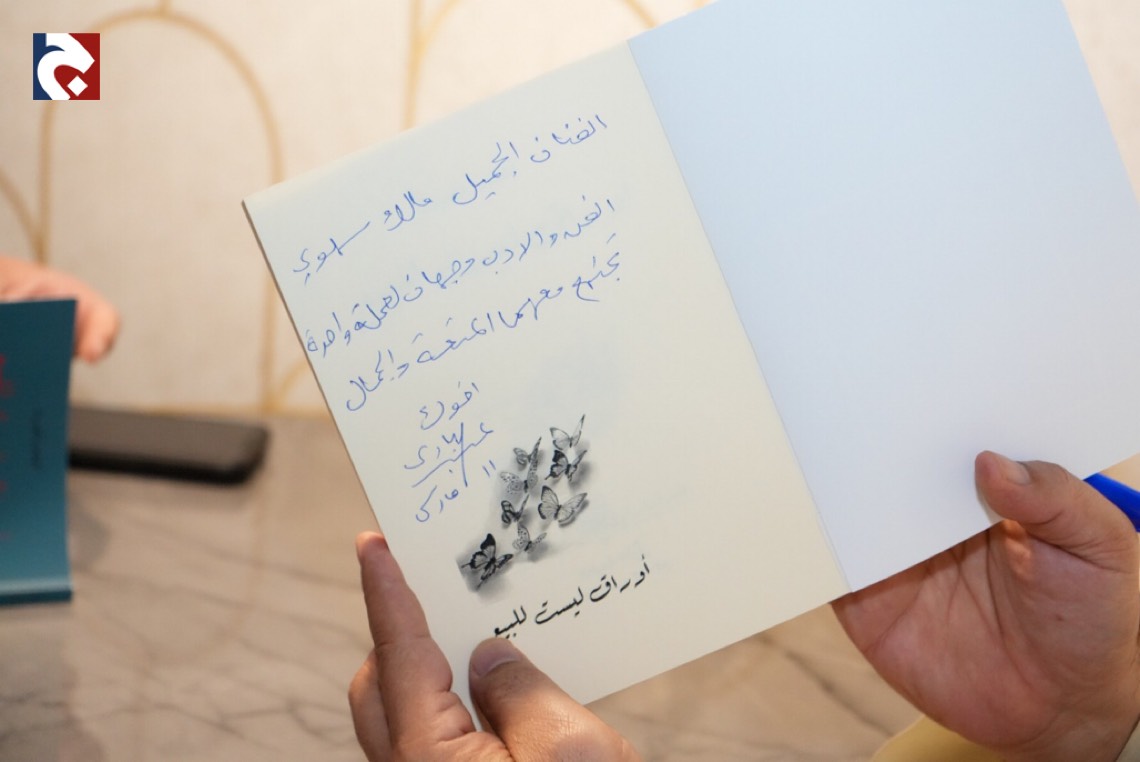 الفنان الجميل مالك سهوي
الفن والادب وجهان لعملة واحدة
يجتمع معهما المتعة والجمال
اخوك
١١ مارس
أوراق ليست للبيع